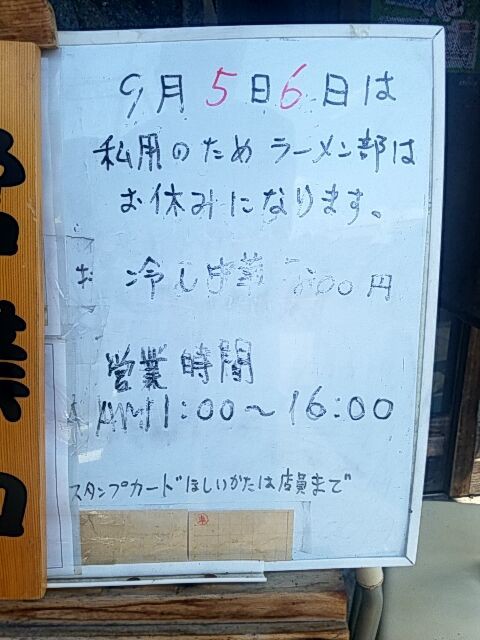 9月5日6日は
私用のためラーメン部は
お休みになります。
冷し 800円
営業時間
AM11:00〜16:00
スタンプカードほしいかたは店員まで